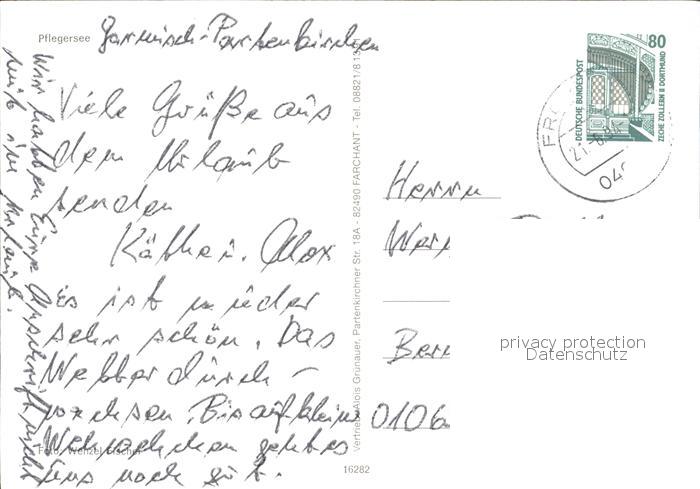 Pflegersee
Garmisch-Partenkirchen
Viele Grüße aus
dem Urlaub
senden
Käthe u. Alex
Es ist wieder
sehr schön. Das
Wetter durch-
wachsen. Bis auf kleine
Wehwehchen geht es
uns noch gut.
Wir haben Eure Anschrift nicht
mit im Urlaub.
Foto: Wenzel Fischer
Vertrieb: Alois Grünauer, Partenkirchner Str. 18A - 82490 FARCHANT - Tel. 08821/8
16282
80
DEUTSCHE BUNDESPOST
ZECHE ZOLLERN II DORTMUND
21.-6.
Herrn
Wer
Ber
0106
privacy protection
Datenschutz